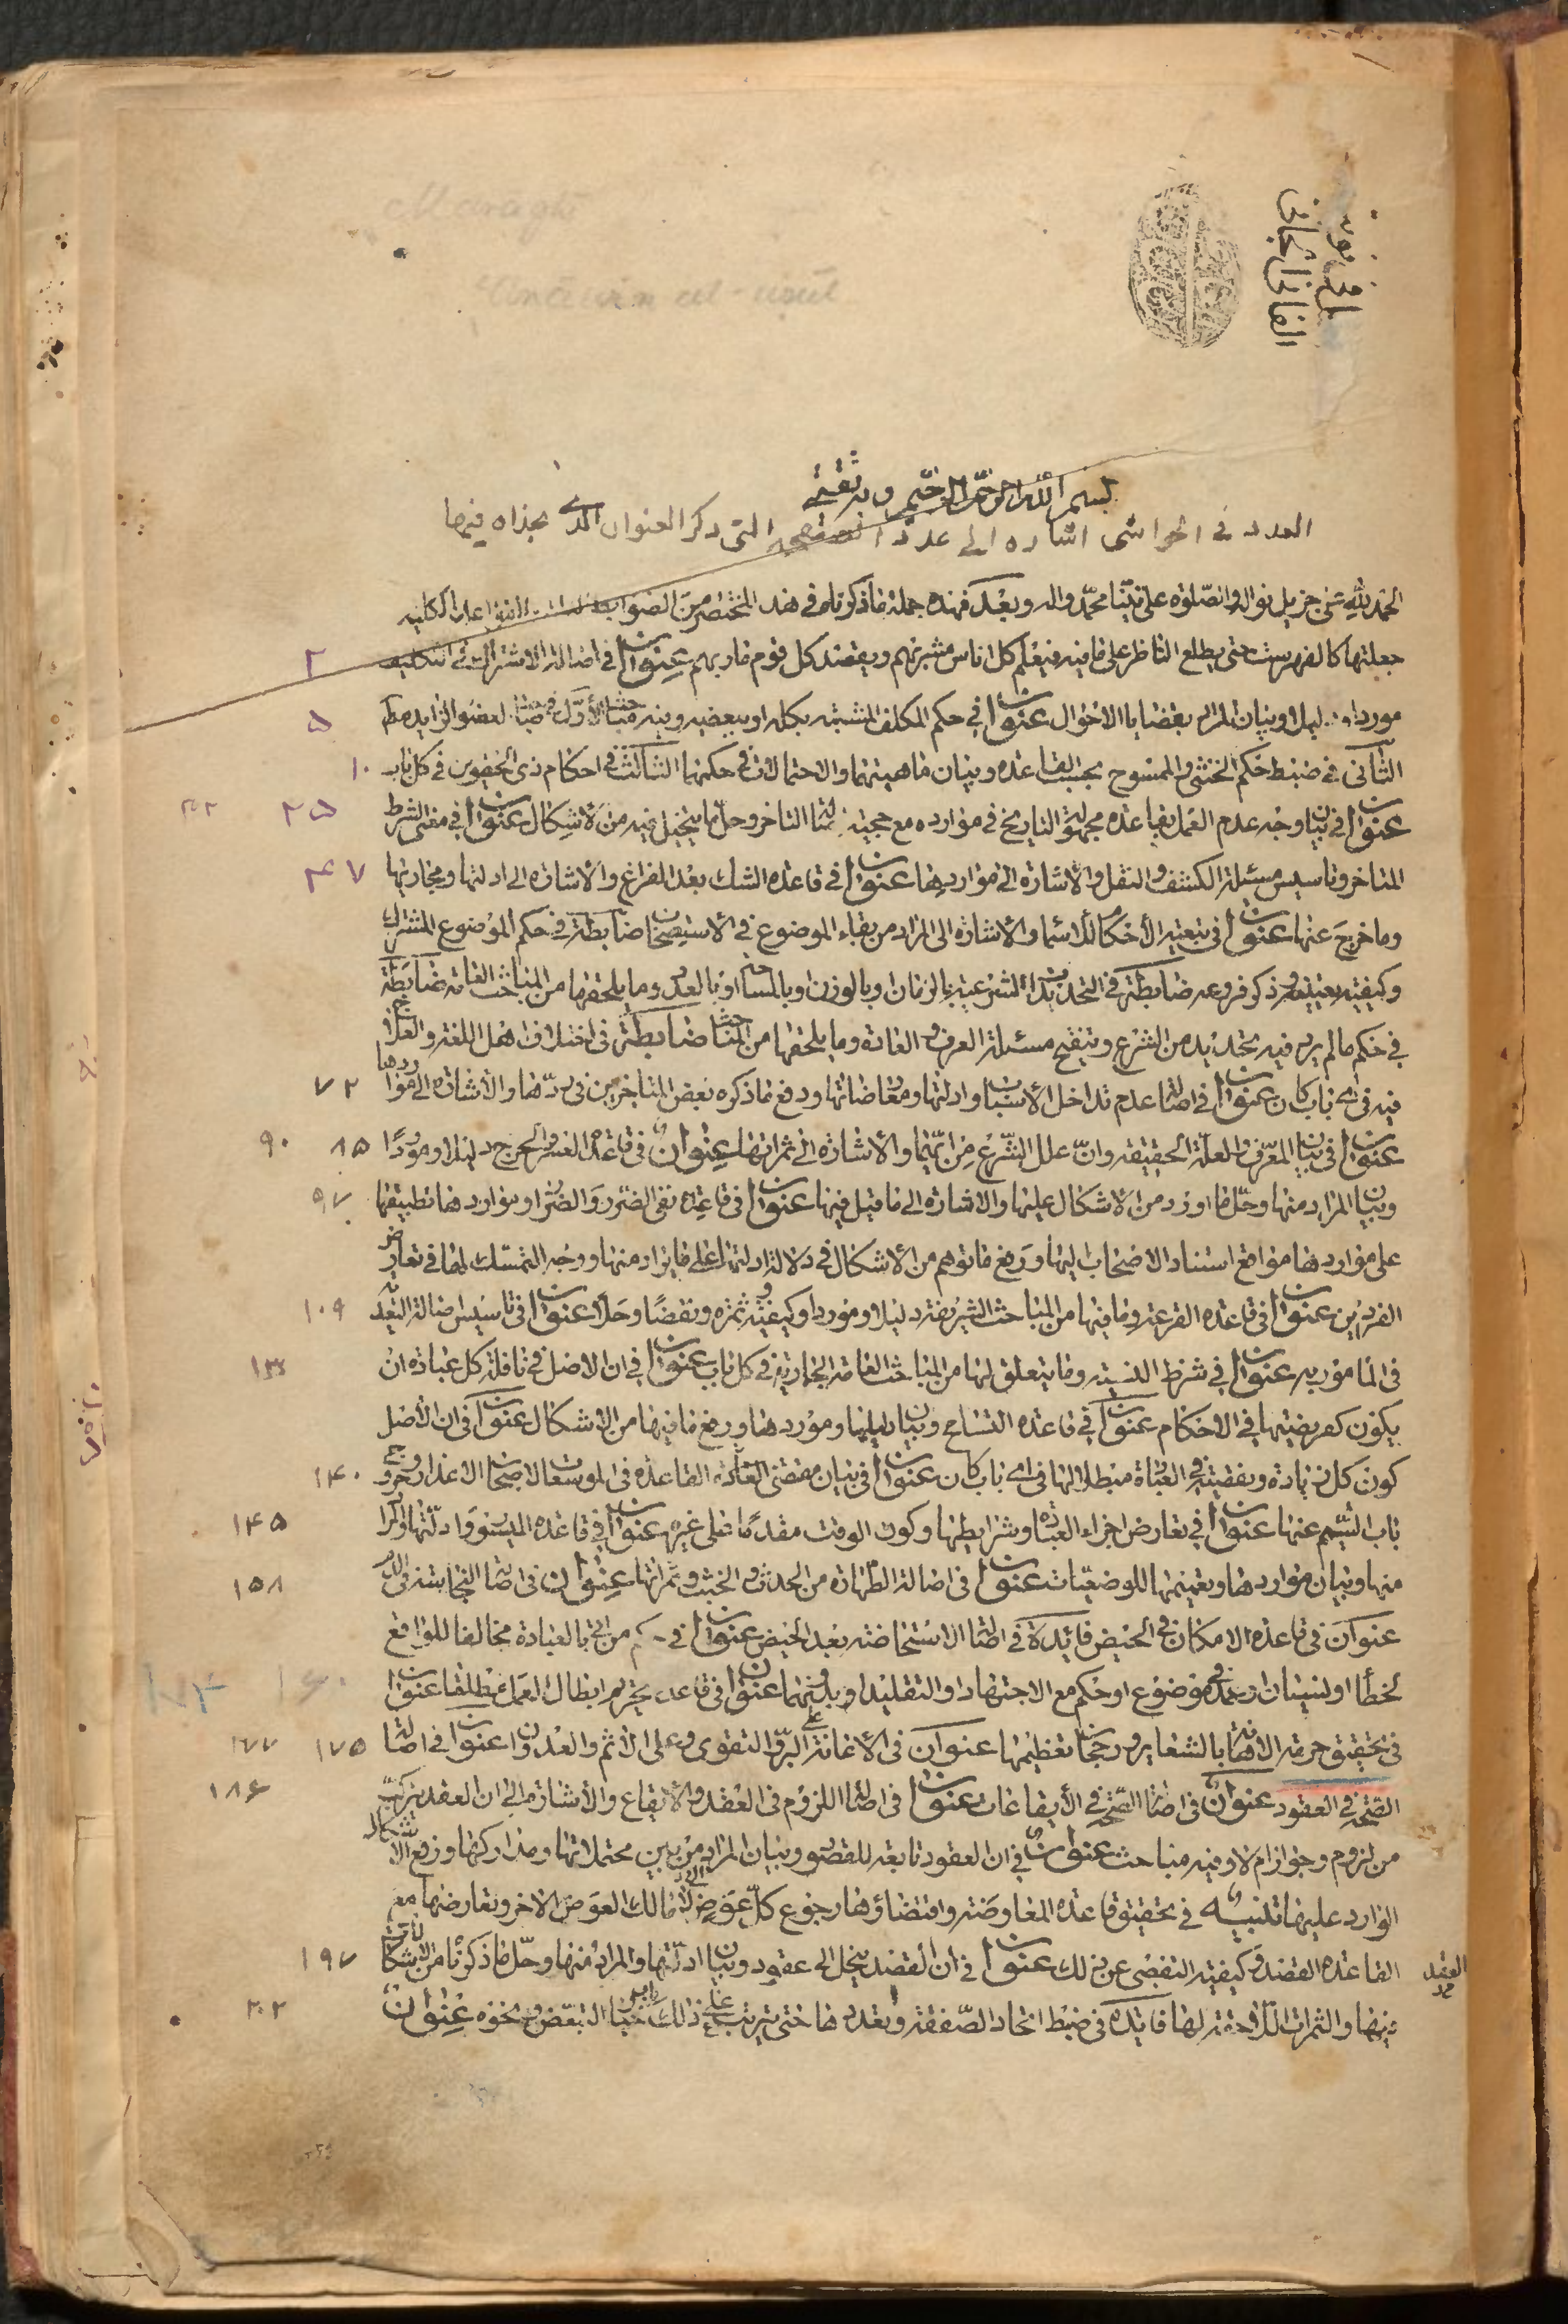 بسم الله الرحمن الرحیم وبه ثقتی
العدد فی الحواشی اشاره الی عدد الصفحه التی ذکر العنوان الذی بحذاه فیها
الحمد لله علی جزیل نواله والصلوة علی نبینا محمد واله وبعد فهذه جملة ما ذکرناه فی هذا المختصر من الضوابط القواعد الکلیه
جعلتها کالفهرست حتی یطلع الناظر علی ما فیه فیعلم کل اناس مشربهم ویقصد کل قوم ماربهم عنوان فی اصالة الاشتراک فی التکلیف ۲
موردا ودلیلا وبیان المراد بقضایا الاحوال عنوان فی حکم المکلف المشتبه بکله او ببعضه وفیه مباحث الاول فی العضو الزاید مط ۵
الثانی فی ضبط حکم الخنثی والممسوح بحسب القاعده وبیان ماهیتهما والاحتمالات فی حکمهما الثالث فی احکام ذی الحقوین فی کل باب ۱۰
عنوان فی بیان وجه عدم العمل بقاعده مجهولة التاریخ فی موارده مع حجیة اصالة التاخر وحل ما یتخیل فیه من الاشکال عنوان فی مقتضی الشرط ۲۵ ۳۲
المتاخر وتاسیس مسئلة الکشف والنقل والاشارة الی مواردها عنوان فی قاعده الشک بعد الفراغ والاشاره الی ادلتها ومجاریها ۴۷
وما خرج عنها عنوان فی تبعیة الاحکام للاسماء والاشاره الی المراد من بقاء الموضوع فی الاستصحاب ضابطة فی حکم الموضوع المشترک
وکیفیه تعیینه وذکر فروعه ضابطة فی التحدیدات الشرعیة بالزمان وبالوزن وبالمساحة او بالعدد وما یلحقها من المباحث العامة ضابطة
فی حکم مالم یرد فیه تحدید من الشرع وتنقیح مسئلة العرف والعادة وما یلحقها من المباحث ضابطة فی اختلاف اهل اللغة والعلاج
فیه فی ای باب کان عنوان فی اصالة عدم تداخل الاسباب وادلتها ومعارضاتها ودفع ما ذکره بعض المتاخرین فی ردها والاشاره الی مواردها ۷۲
عنوان فی بیان المعرف والعلة الحقیقة وان علل الشرع من ایهما والاشاره الی ثمراتها عنوان فی قاعدة العسر والحرج دلیلا وموردا ۸۵ ۹۰
وبیان المراد منها وحل ما اورد من الاشکال علیها والاشاره الی ما قیل فیها عنوان فی قاعدة نفی الضرر والضرار ومواردها تطبیقها ۹۷
علی مواردها مواقع استناد الاصحاب الیها ورفع ما توهم من الاشکال فی دلالة ادلتها علی ما یراد منها ووجه التمسک لها فی تعارض
الفردین عنوان فی قاعده القرعة وما فیها من المباحث الشریفة دلیلا وموردا وکیفیة وثمره ونقضا وحلا عنوان فی تاسیس اصالة التعبدیة ۱۰۹
فی المامور به عنوان فی شرط النیة وما یتعلق لها من المباحث العامة الجاریة فی کل باب عنوان فی ان الاصل فی نافلة کل عبادة ان ۱۳۳
یکون کفریضتها فی الاحکام عنوان فی قاعده التسامح وبیان دلیلها وموردها ورفع ما فیها من الاشکال عنوان فی ان الاصل
کون کل زیادة ونقیصة فی العبادة مبطلا لها فی ای باب کان عنوان فی بیان مقتضی القاعده فی الاعذار وخروج ۱۴۰
باب التیمم عنها عنوان فی تعارض اجزاء العبادة وشرایطها وکون الوقت مقدما علی غیره عنوان فی قاعده المیسور وادلتها ۱۴۵
منها وبیان مواردها وتعمیمها للوضعیات عنوان فی اصالة الطهارة من الحدث والخبث وثمراتها عنوان فی اصالة النجاسة فی الدم ۱۵۸
عنوان فی قاعدة الامکان فی الحیض فایدة فی اصالة الاستحاضة بعد الحیض عنوان فی حکم من اتی بالعبادة مخالفا للواقع
لخطأ او لنسیان وعمد فی موضوع او حکم مع الاجتهاد او التقلید او بدونهما عنوان فی قاعدة تحریم ابطال العمل مطلقا عنوان
فی تحقیق حرمة الاهانة بالشعایر ورجحان تعظیمها عنوان فی الاعانة علی البر والتقوی وعلی الاثم والعدوان عنوان فی اصالة ۱۷۵ ۱۷۷
الصحة فی العقود عنوان فی اصالة الصحة فی الایقاعات عنوان فی اصالة اللزوم فی العقد والایقاع والاشارة الی ان العقد یترکب ۱۸۶
من لزوم وجواز ام لا وفیه مباحث عنوان فی ان العقود تابعة للقصود وبیان المراد من بین محتملاتها ومدارکها ورفع الاشکال
الوارد علیها تنبیه فی تحقیق قاعدة المعاوضة واقتضاؤها رجوع کل عوض الی مالک العوض الاخر وتعارضها مع
القاعده العقد القصد وکیفیة التفصی عن ذلک عنوان فی ان العقد ینحل الی عقود وبیان ادلتها والمراد منها وحل ما ذکرنا من الاشکالات ۱۹۷
فیها والثمرات اللاحقة لها فایدة فی ضبط اتحاد الصفقة وتعددها حتی یترتب علی ذلک خیار التبعض ونحوه عنوان ۲۰۲